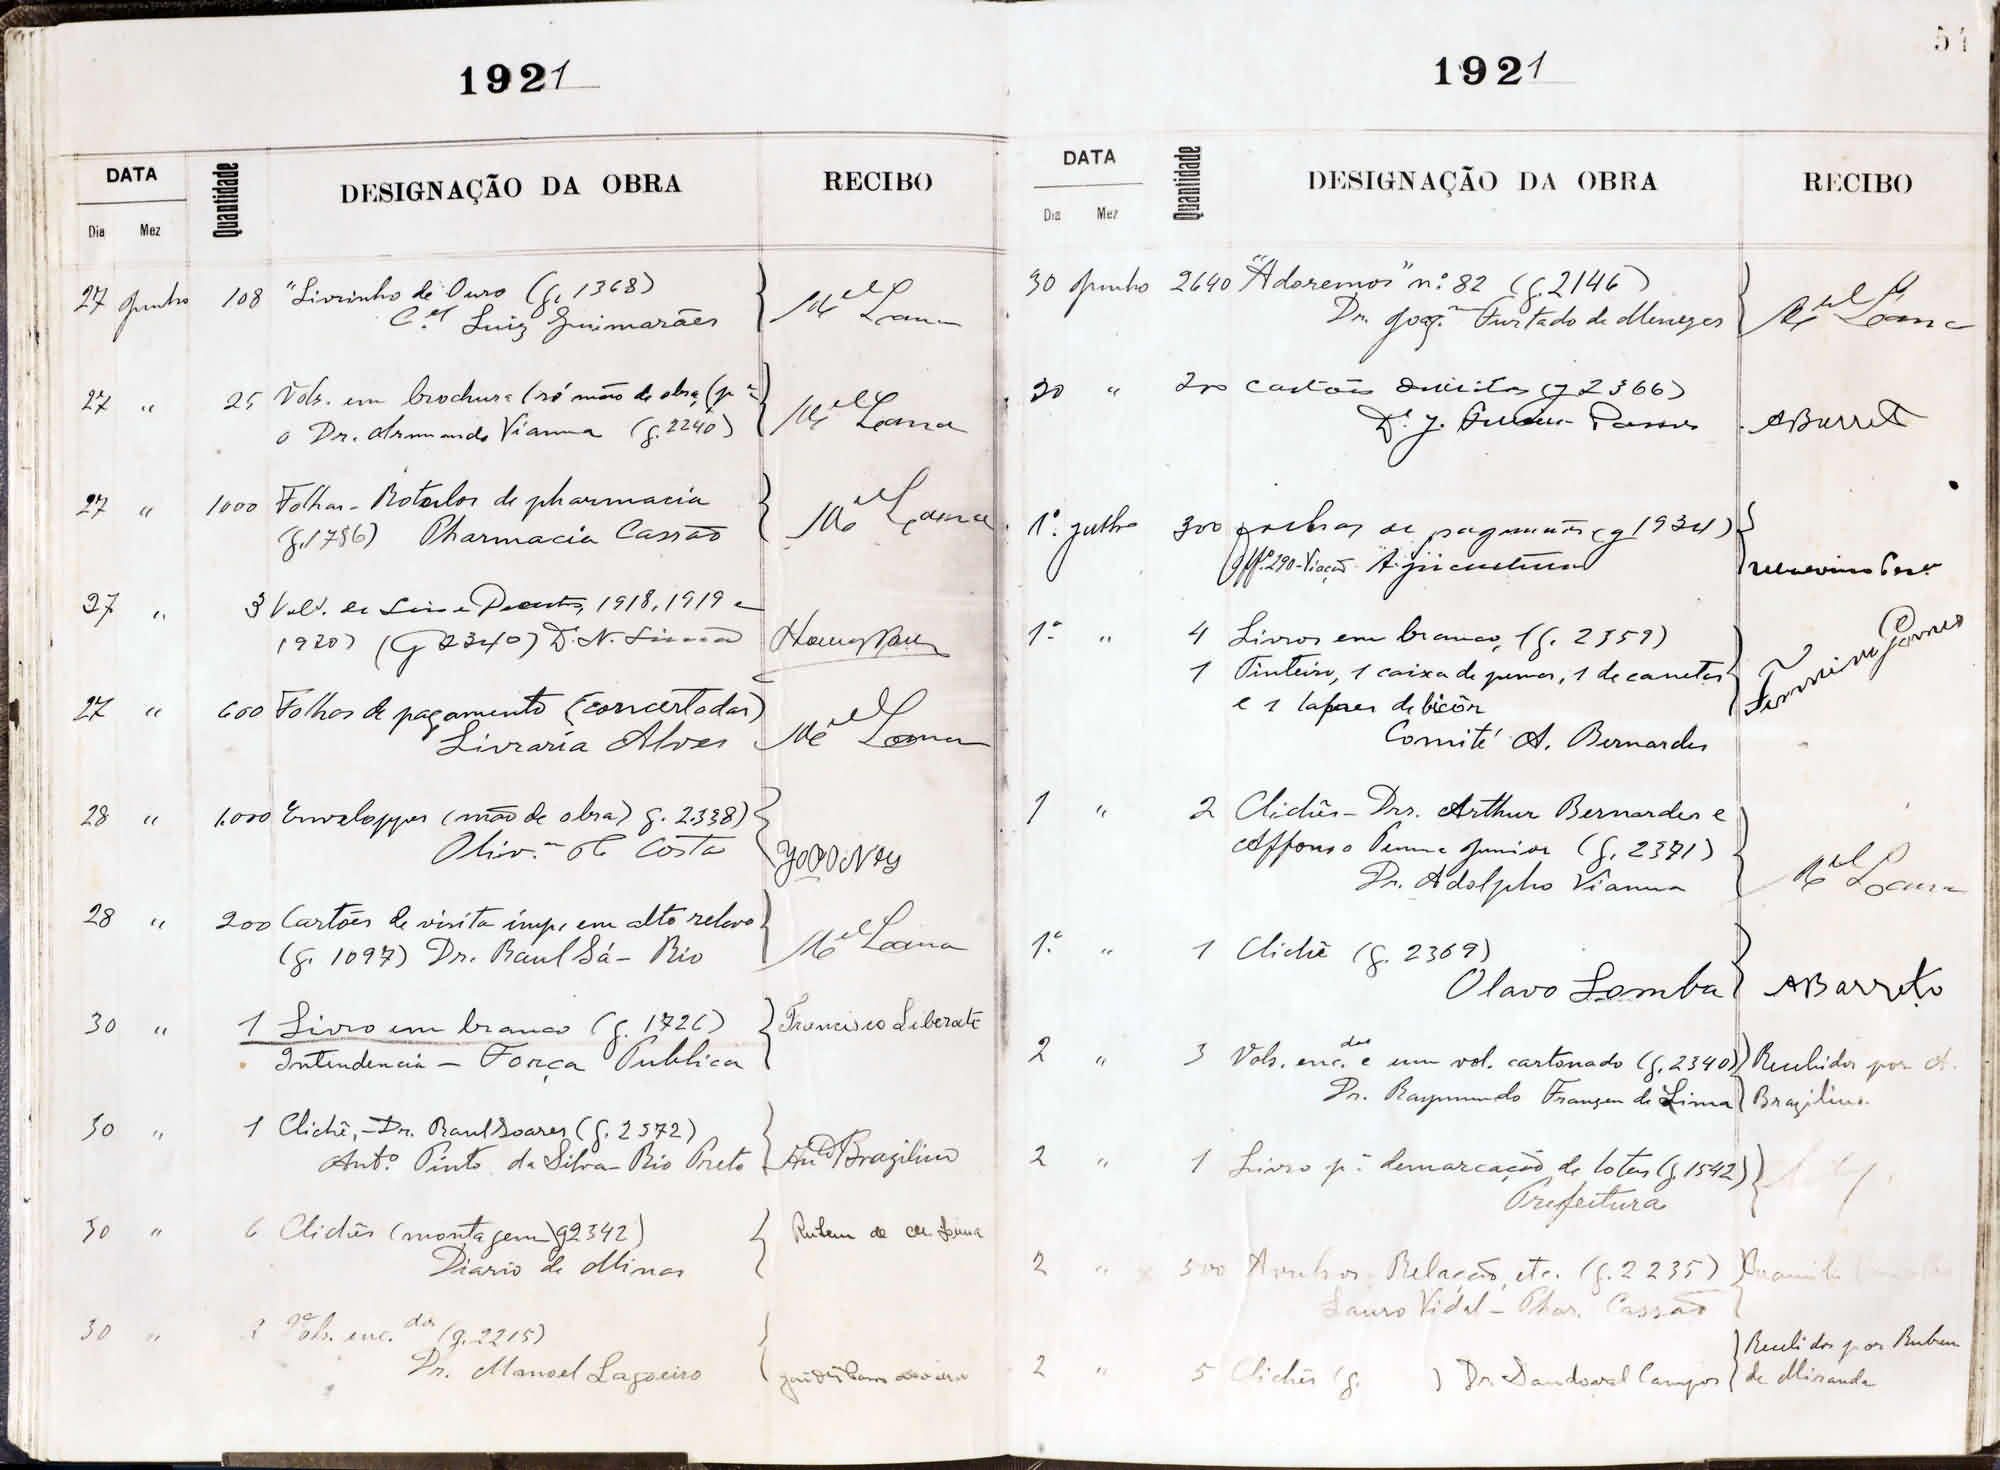 1921
DATA
Dia Mez
Quantidade
DESIGNAÇÃO DA OBRA
RECIBO
27 Junho 108 "Livrinho de Ouro (g. 1368)
C.el Luiz Guimarães
M.el Lana
27 " 25 Vols. em brochura (só mão de obra) (p.a
o Dr. Armando Vianna (g. 2240)
M.el Lana
27 " 1000 Folhas - Rotulos de pharmacia
(g. 1786) Pharmacia Cassão
M.el Lana
27 " 3 Vols. de Leis e Decretos, 1918, 1919 e
1920) (g 2340) Dr. N.
27 " 600 Folhas de pagamento (concertadas)
Livraria Alves
M.el Lana
28 " 1.000 Enveloppes (mão de obra) g. 2338)
Oliv.ra & Costa
28 " 200 Cartões de visita imp. em alto relevo
(g. 1097) Dr. Raul Sá - Rio
M.el Lana
30 " 1 Livro em branco (g. 1726)
Intendencia - Força Publica
Francisco Liberato
30 " 1 Clichê, - Dr. Raul Soares (g. 2372)
Ant.o Pinto da Silva - Rio Preto
Brazilino
30 " 6 Clichês (montagem) g 2342)
Diario de Minas
Rubem de
30 " Vols. enc.dos (g. 2215)
Dr. Manoel Lagoeiro
1921
51
DATA
Dia Mez
Quantidade
DESIGNAÇÃO DA OBRA
RECIBO
30 Junho 2640 "Adoremos" n.o 82 (g. 2146)
Dr. Joaq.m Furtado de Menezes
M.el Lana
30 " 200 cartões de visitas (g 2366)
Dr. J.
A Barreto
1.o Julho 300 folhas de pagamentos (g 1934)
Off.o 290 - Viação Agricultura
1.o " 4 Livros em branco, (g. 2359)
1 Tinteiro, 1 caixa de pennas, 1 de canetas
e 1 lapis de bicôr
Comité A. Bernardes
Firmino Gomes
1 " 2 Clichês - Drs. Arthur Bernardes e
Affonso Penna Junior (g. 2371)
Dr. Adolpho Vianna
M.el Lana
1.o " 1 Clichê (g. 2369)
Olavo Lomba
A Barreto
2 " 3 Vols. enc.dos e um vol. cartonado (g. 2340)
Dr. Raymundo Franzen de Lima
Recebidos por A.
Brazilino.
2 " 1 Livro p.a demarcação de lotes (g. 1542)
Prefeitura
2 " 500 Avulsos Relação, etc. (g. 2235)
Lauro Vidal - Phar. Cassão
2 " 5 Clichês (g. ) Dr. Sandoval Campos
Recebidos por Rubem
de Miranda